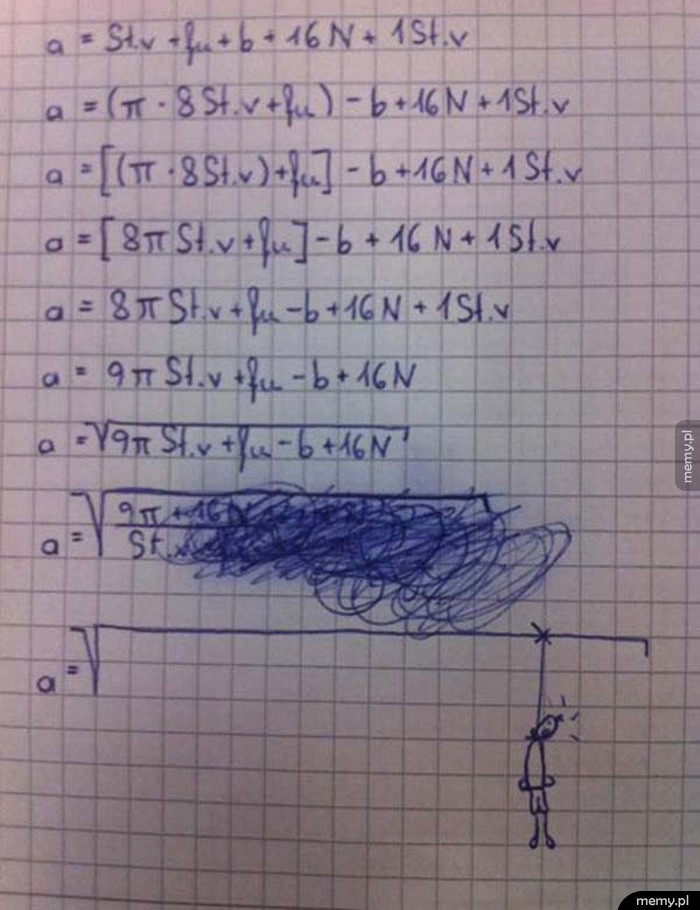 a = St.v + fu + b + 16 N + 1 St.v
a = (π · 8 St.v + fu) - b + 16 N + 1 St.v
a = [(π · 8 St.v) + fu] - b + 16 N + 1 St.v
a = [8π St.v + fu] - b + 16 N + 1 St.v
a = 8π St.v + fu - b + 16 N + 1 St.v
a = 9π St.v + fu - b + 16 N
a = √9π St.v + fu - b + 16 N
memy.pl
a = √ 9π + 16
St.
a = √
memy.pl